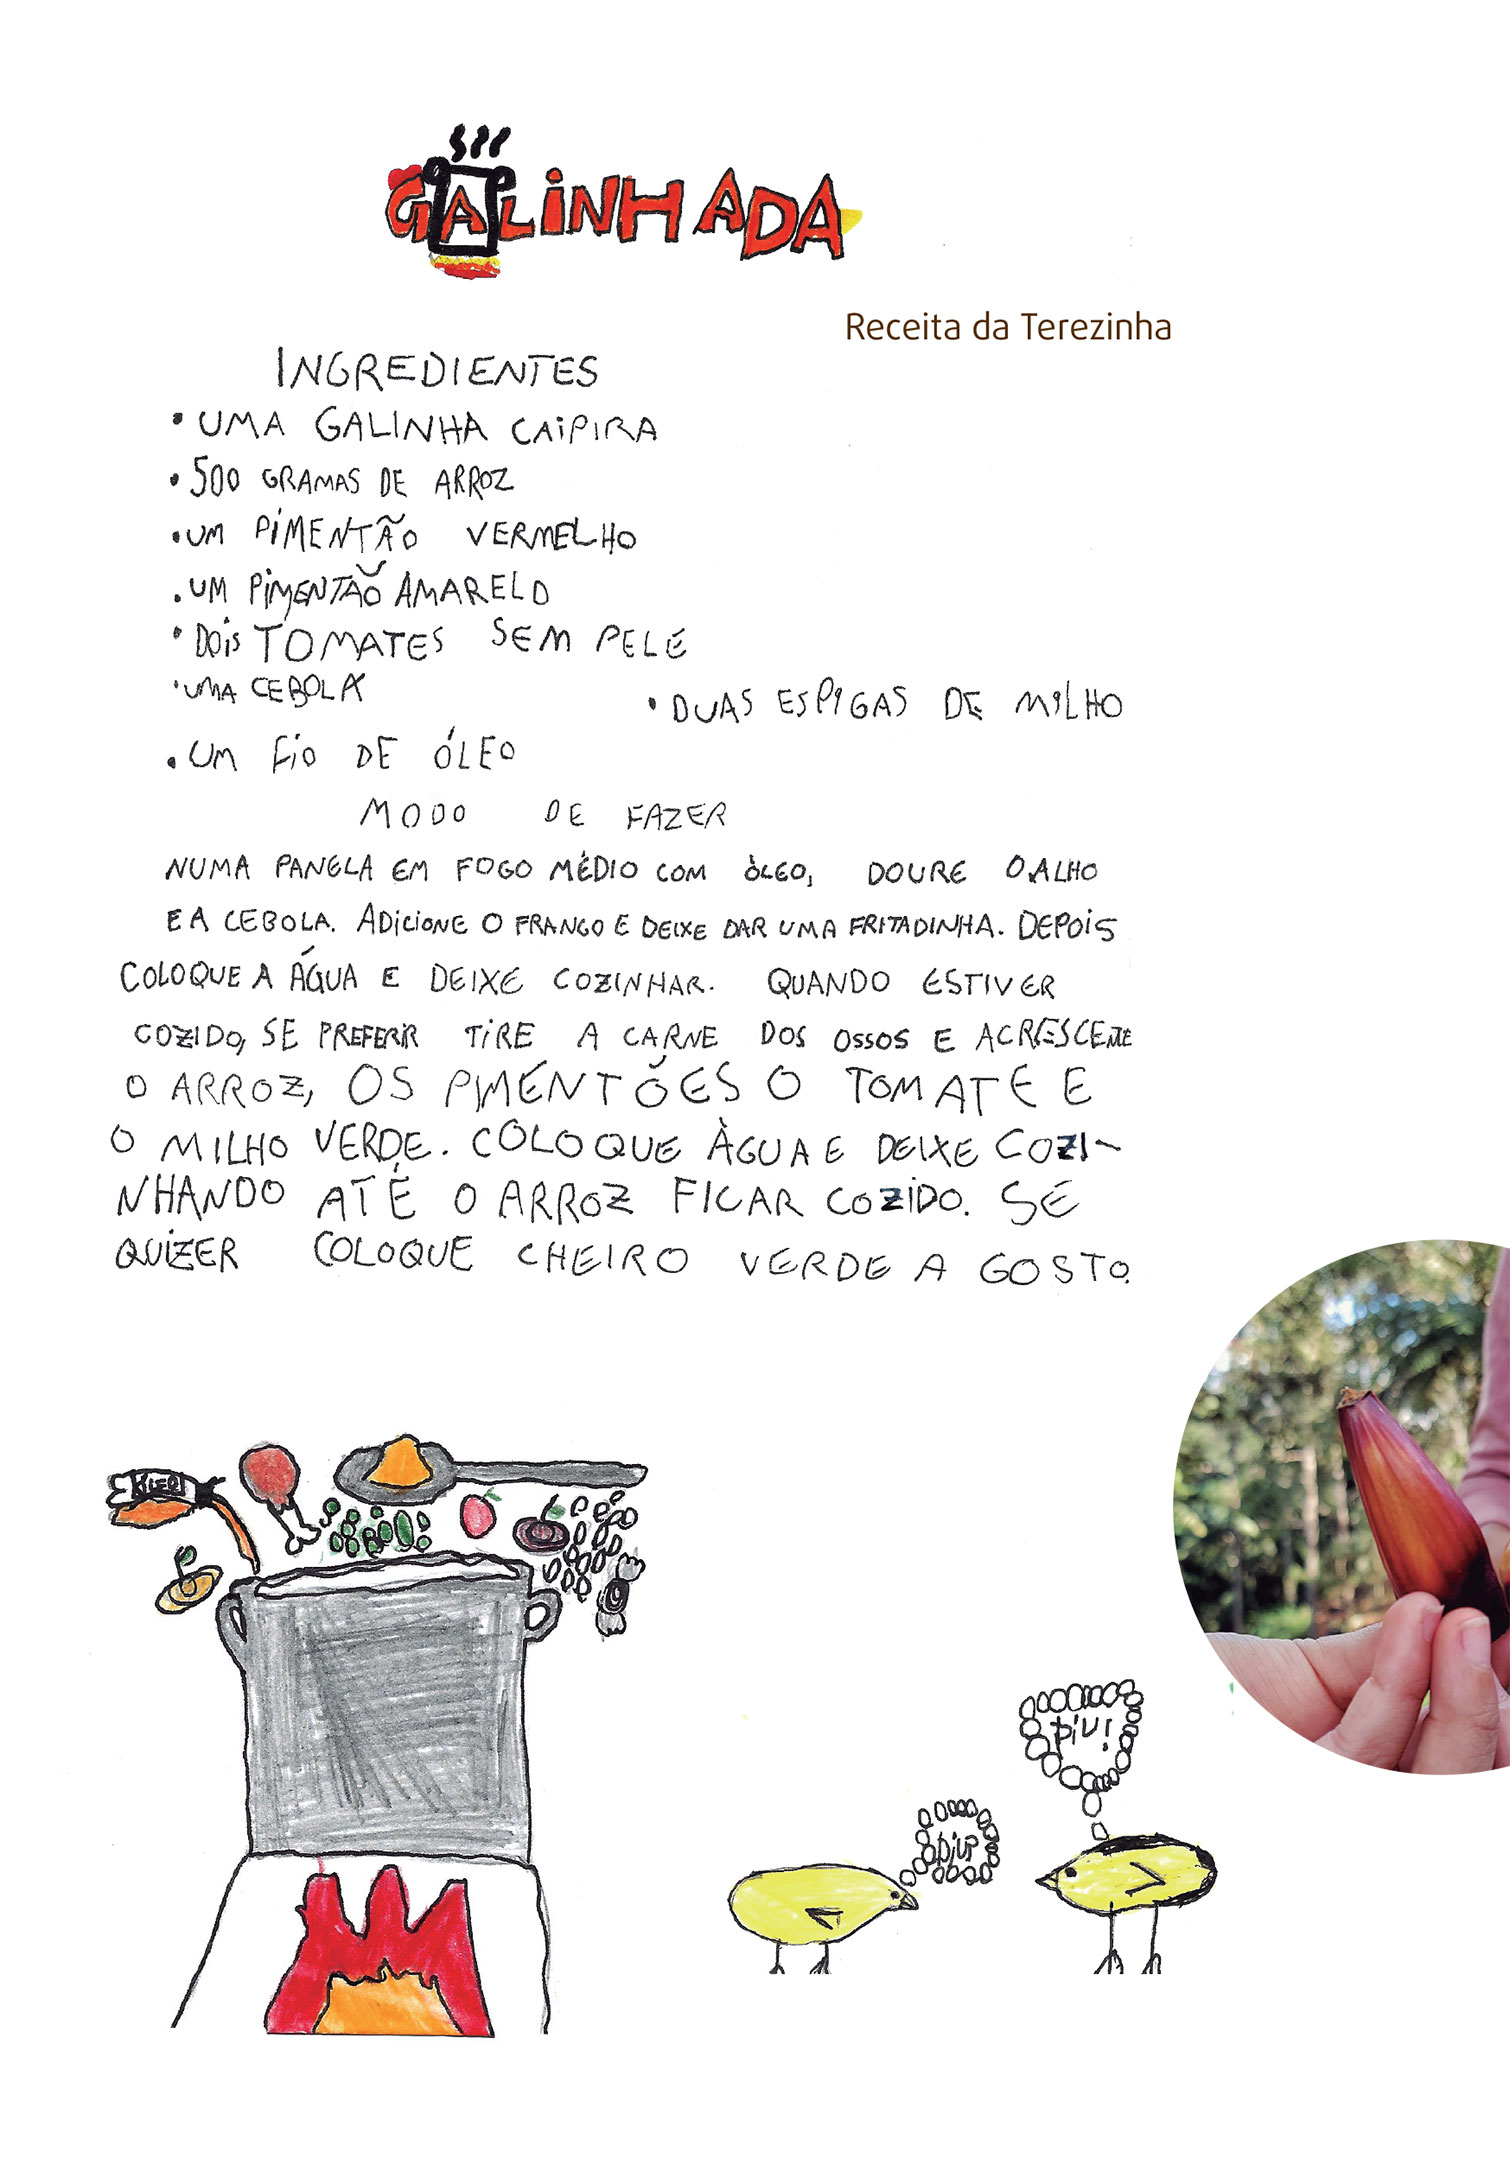 GALINHADA
Receita da Terezinha
INGREDIENTES
• UMA GALINHA CAIPIRA
• 500 GRAMAS DE ARROZ
• UM PIMENTÃO VERMELHO
• UM PIMENTÃO AMARELO
• DOIS TOMATES SEM PELE
• UMA CEBOLA
• DUAS ESPIGAS DE MILHO
• UM FIO DE ÓLEO
MODO DE FAZER
NUMA PANELA EM FOGO MÉDIO COM ÓLEO, DOURE O ALHO
E A CEBOLA. ADICIONE O FRANGO E DEIXE DAR UMA FRITADINHA. DEPOIS
COLOQUE A ÁGUA E DEIXE COZINHAR. QUANDO ESTIVER
COZIDO, SE PREFERIR TIRE A CARNE DOS OSSOS E ACRESCENTE
O ARROZ, OS PIMENTÕES O TOMATE E
O MILHO VERDE. COLOQUE ÀGUA E DEIXE COZI-
NHANDO ATÉ O ARROZ FICAR COZIDO. SE
QUIZER COLOQUE CHEIRO VERDE A GOSTO.
PIU!